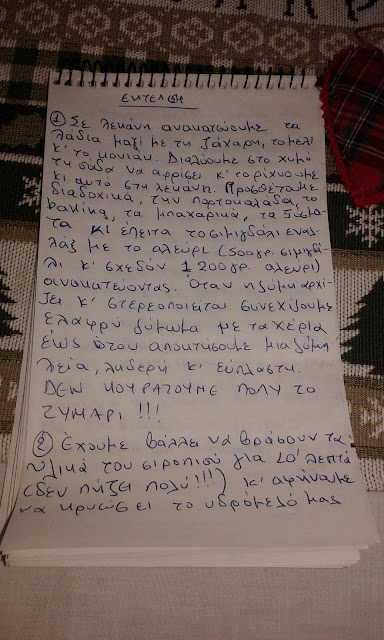 ΕΚΤΕΛΕΣΗ
① Σε λεκάνη ανακατώουμε τα
λάδια μαζί με τη ζάχαρη, το μέλι
κ' το κονιάκ. Διαλύουμε στο χυμό
τη σόδα να αφρίσει κ' το ρίχνουμε
κι αυτό στη λεκάνη. Προσθέτουμε
διαδοχικά, την πορτοκαλάδα, το
baking, τα μπαχαρικά, τα ξύσμα-
τα κι έπειτα το σιμιγδάλι εναλ-
λάξ με το αλεύρι (500γρ. σιμιγδά-
λι κ' σχεδόν 1200γρ. αλεύρι)
ανακατεύοντας. Όταν η ζύμη αρχί-
ζει κ' στερεοποιείται συνεχίζουμε
ελαφρύ ζύμωμα με τα χέρια
έως ότου αποκτήσουμε μια ζύμη
λεία, λαδερή κ' εύπλαστη.
ΔΕΝ ΚΟΥΡΑΖΟΥΜΕ ΠΟΛΥ ΤΟ
ΖΥΜΑΡΙ !!!
② Έχουμε βάλλει να βράσουν τα
υλικά του σιροπιού για 20' λεπτά
(δεν πήζει πολύ!!!) κ' αφήνουμε
να κρυώσει το υδρόμελό μας